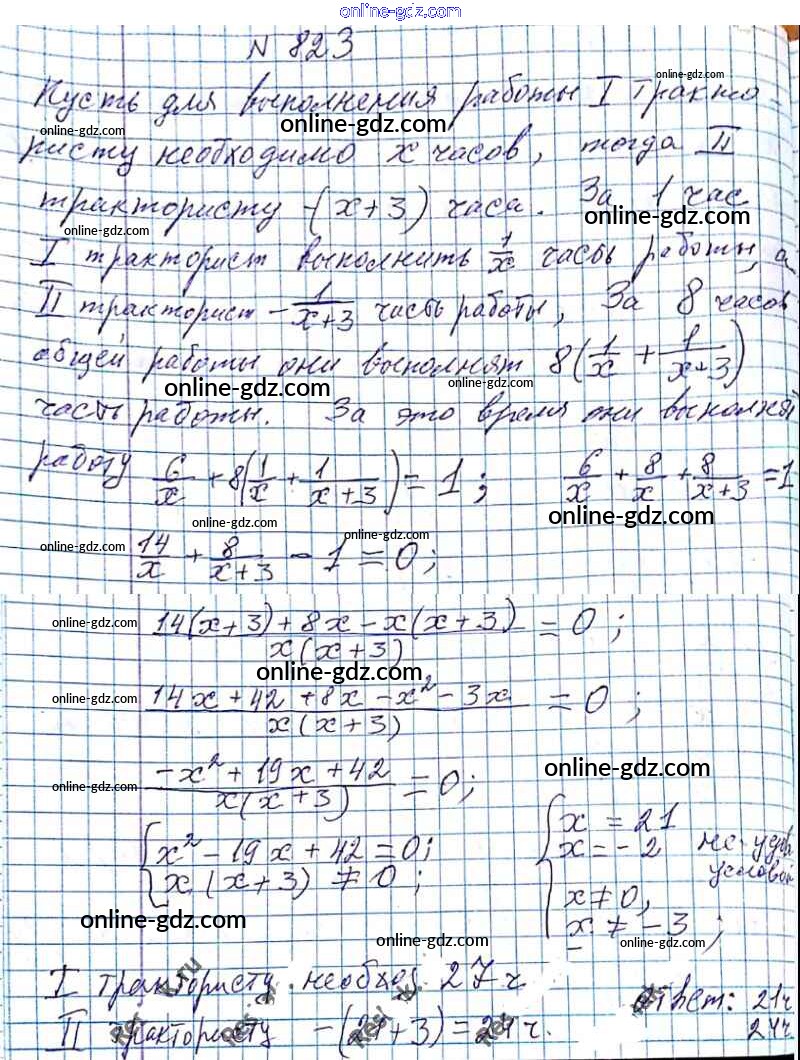 online-gdz.com
N 823
online-gdz.com
Пусть для выполнения работы I тракто-
online-gdz.com online-gdz.com
ристу необходимо x часов, тогда II
трактористу - (x+3) часа. За 1 час
online-gdz.com online-gdz.com
I тракторист выполнить 1/x часть работы, а
II тракторист - 1/(x+3) часть работы, За 8 часов
общей работы они выполнят 8(1/x + 1/(x+3))
online-gdz.com online-gdz.com
часть работы. За это время они выполнят
работу 6/x + 8(1/x + 1/(x+3)) = 1; 6/x + 8/x + 8/(x+3) = 1
online-gdz.com online-gdz.com
online-gdz.com 14/x + 8/(x+3) - 1 = 0; online-gdz.com
online-gdz.com (14(x+3)+8x-x(x+3))/(x(x+3)) = 0; online-gdz.com
online-gdz.com
online-gdz.com (14x+42+8x-x²-3x)/(x(x+3)) = 0;
online-gdz.com (-x²+19x+42)/(x(x+3)) = 0; online-gdz.com
{x²-19x+42=0; {x = 21
x(x+3) ≠ 0; x = -2 не удов. условой
x ≠ 0,
online-gdz.com x ≠ -3;
online-gdz.com online-gdz.com
I трактористу необход 27 ч
Ответ: 21ч
II трактористу - (21+3) = 24 ч. 24ч.